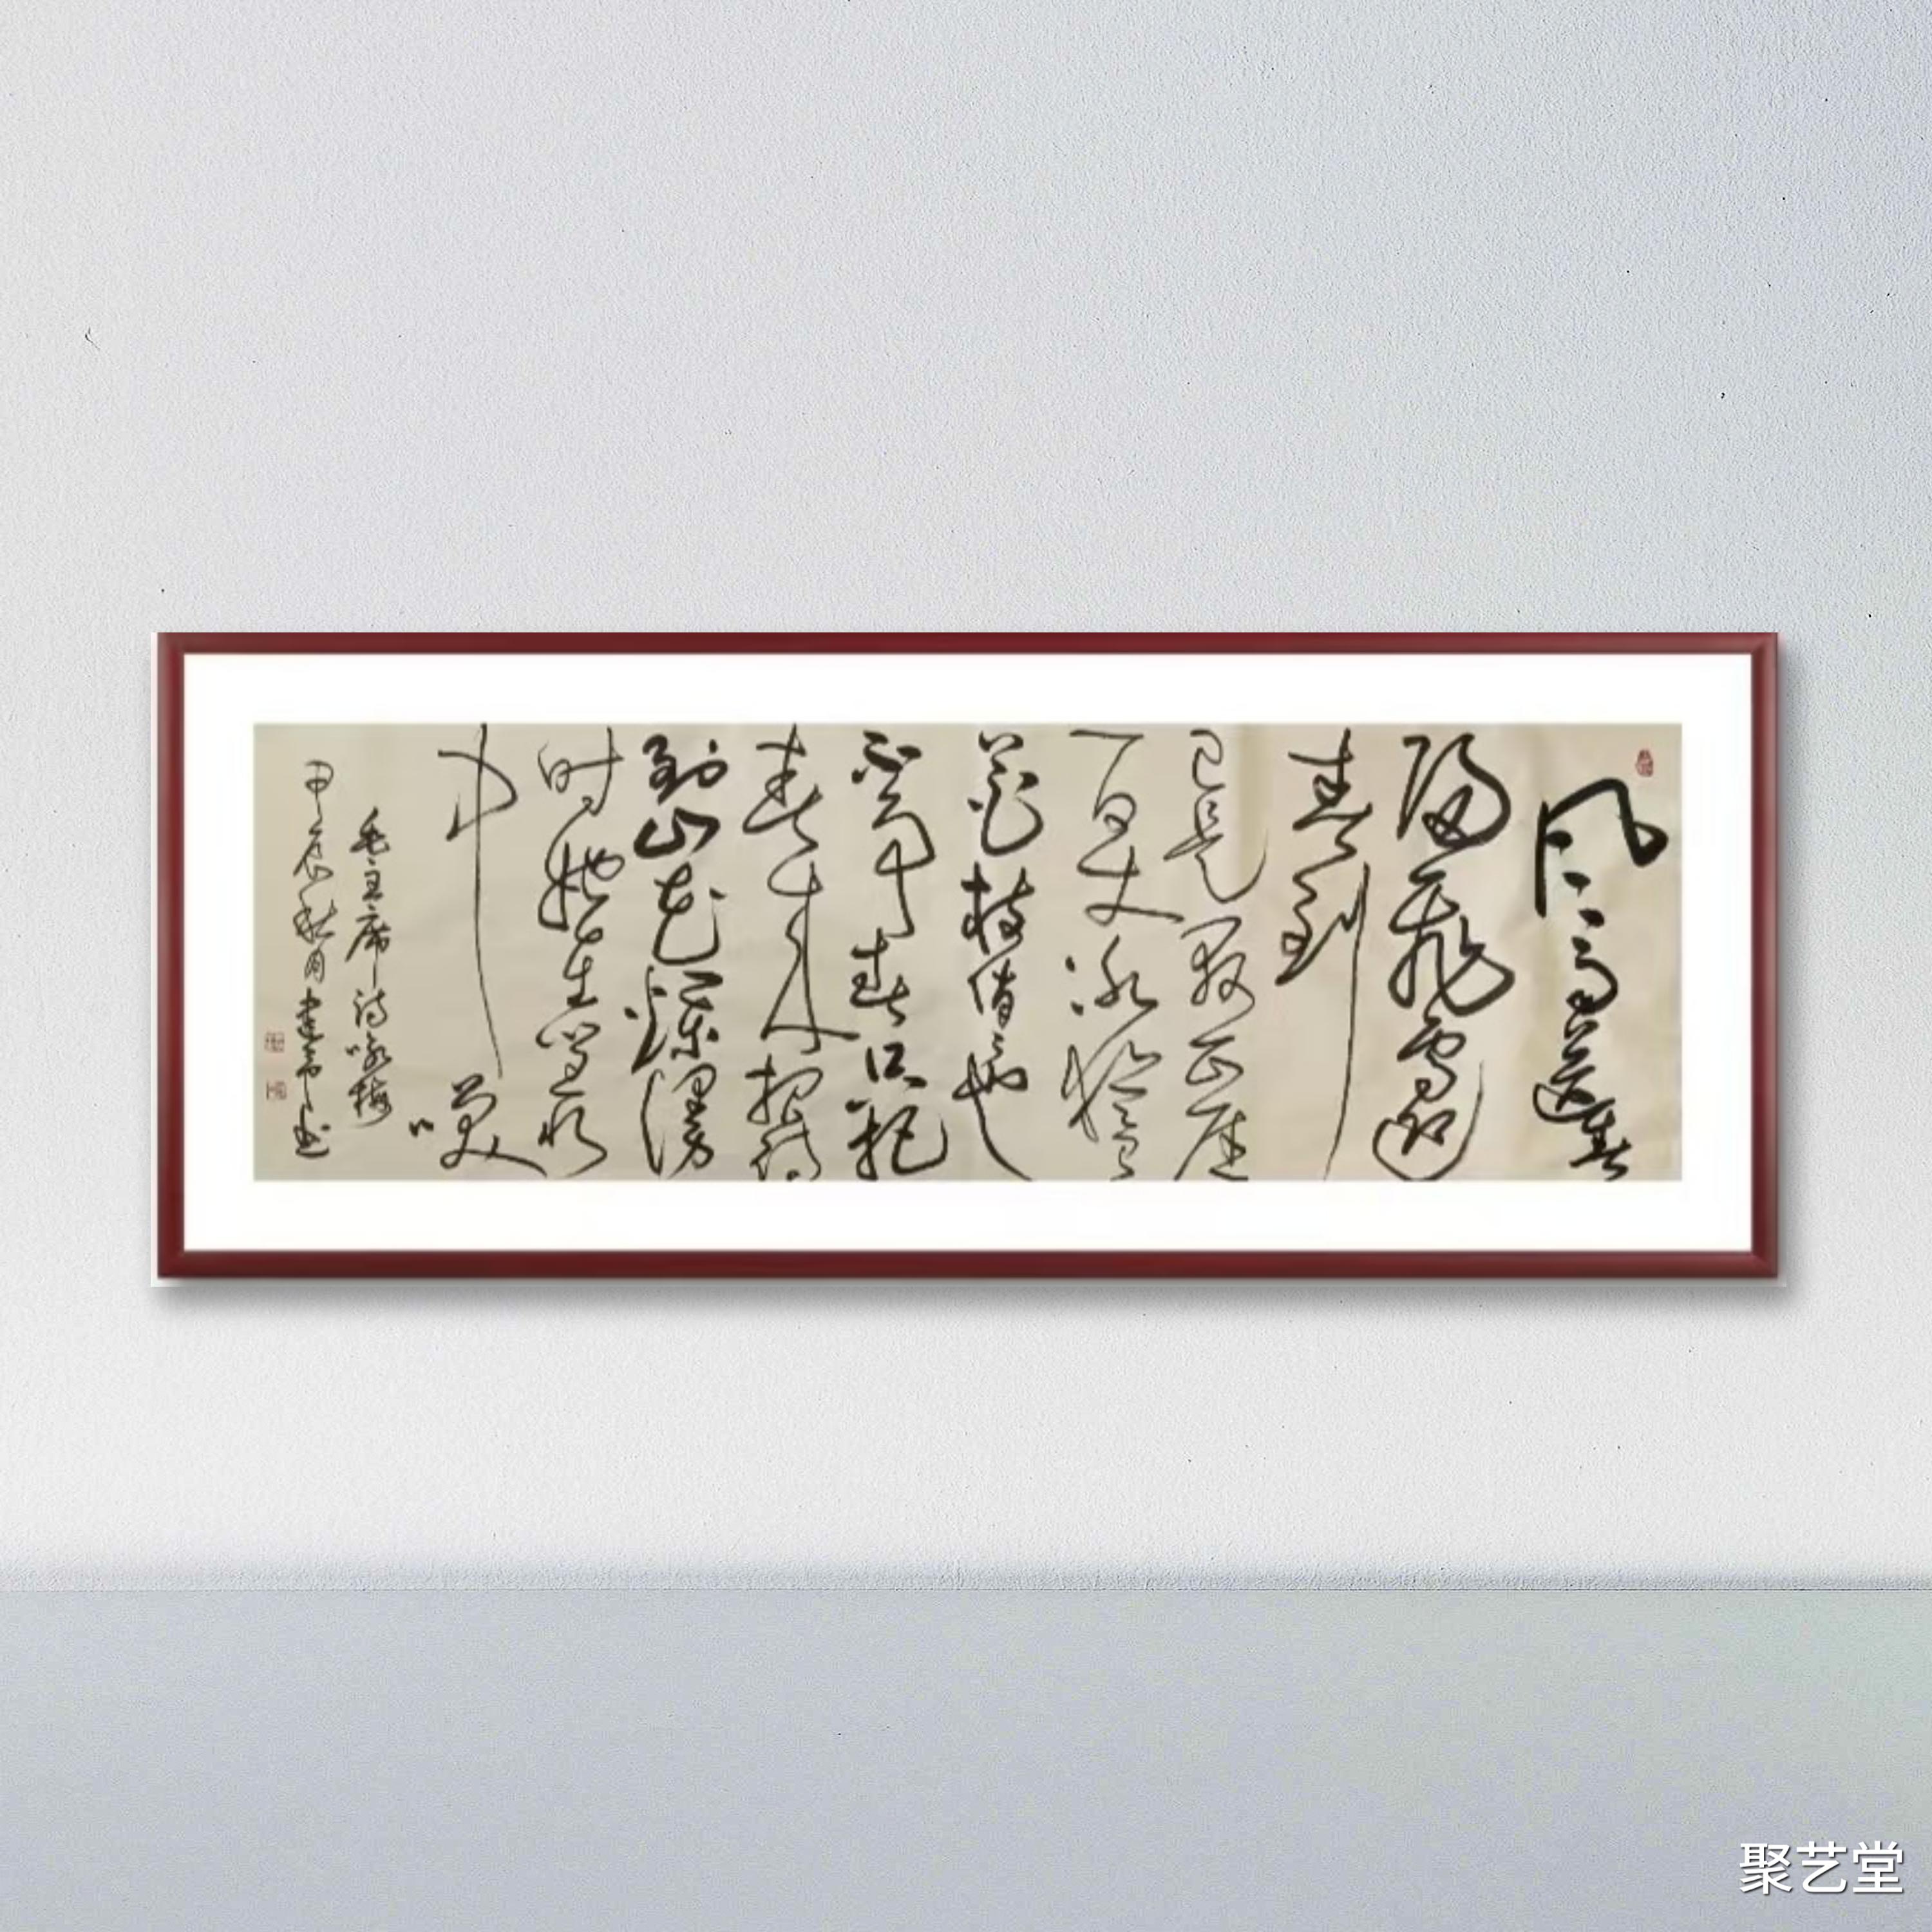 风雨送春
归飛雪迎
春到
已是悬崖
百丈冰犹有
花枝俏俏也
不争春只把
春来报待
到山花烂漫
时她在丛
中笑
毛主席诗咏梅
甲辰秋月建书
聚艺堂